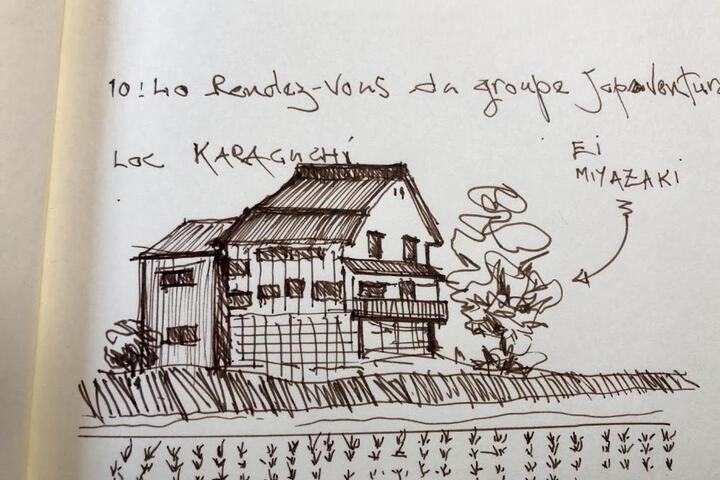 10:40 Rendez-vous du groupe Japaventura
Loc KARAGUCHI
Ei
MIYAZAKI